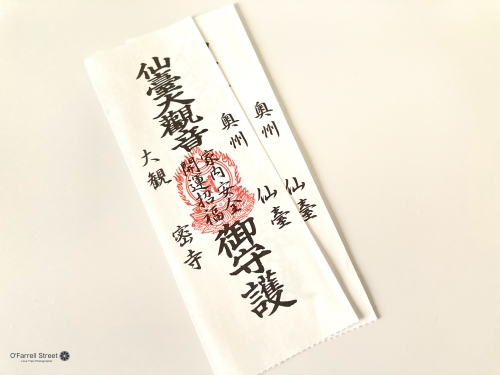 奥州仙臺
奥州仙臺
仙臺大觀音
家内安全
開運招福
御守護
大観密寺
O'Farrell Street